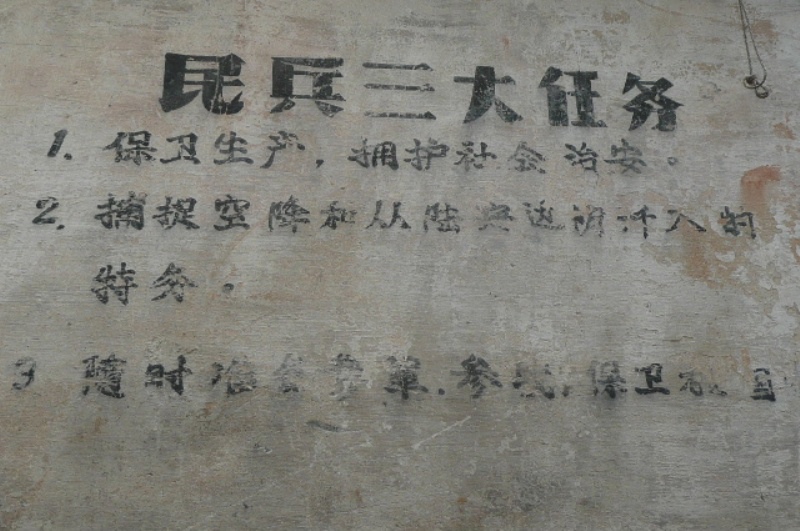 民兵三大任务
1. 保卫生产，拥护社会治安。
2. 捕捉空降和从陆 入的
特务。
3 随时准备参军，参战，保卫祖国